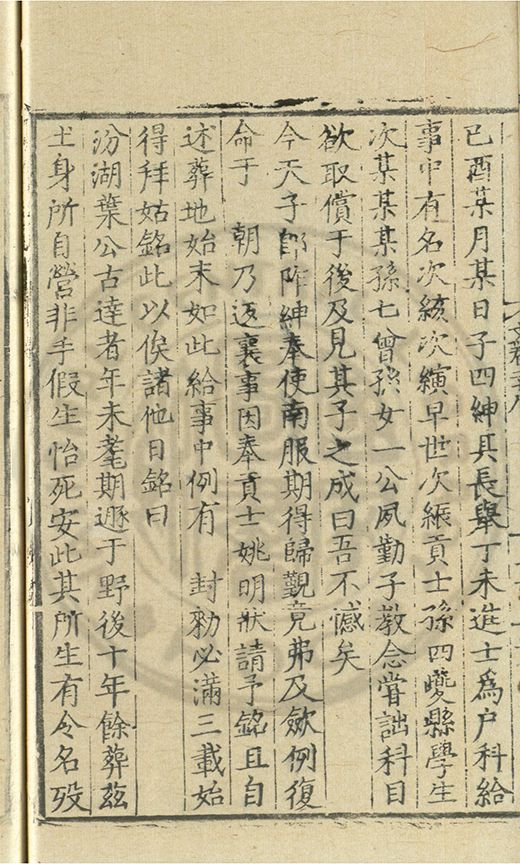 己酉某月某日子四紳其長舉丁未進士為户科給
事中有名次綋次縯早世次綖貢士孫四夔縣學生
次某某某孫七曾孫女一公夙勤子教念嘗詘科目
欲取償于後及見其子之成曰吾不憾矣
今天子郎阼紳奉使南服期得歸覲竟弗及斂例復
命于　朝乃返襄事因奉貢士姚明狀請予銘且自
述葬地始末如此給事中例有　封勑必滿三載始
得拜姑銘此以俟諸他日銘曰
汾湖葉公古達者年未耄期遯于野後十年餘葬茲
土身所自營非手假生怡死安此其所生有令名歿